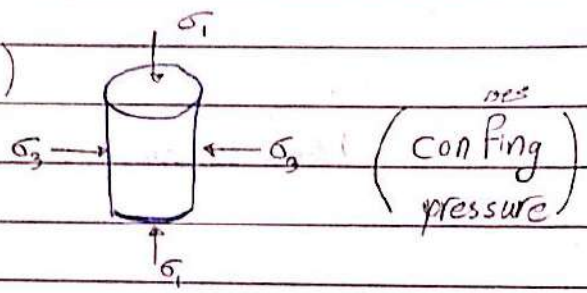 σ₁
)
σ₃ σ₃ (con fing
pressure)
σ₁